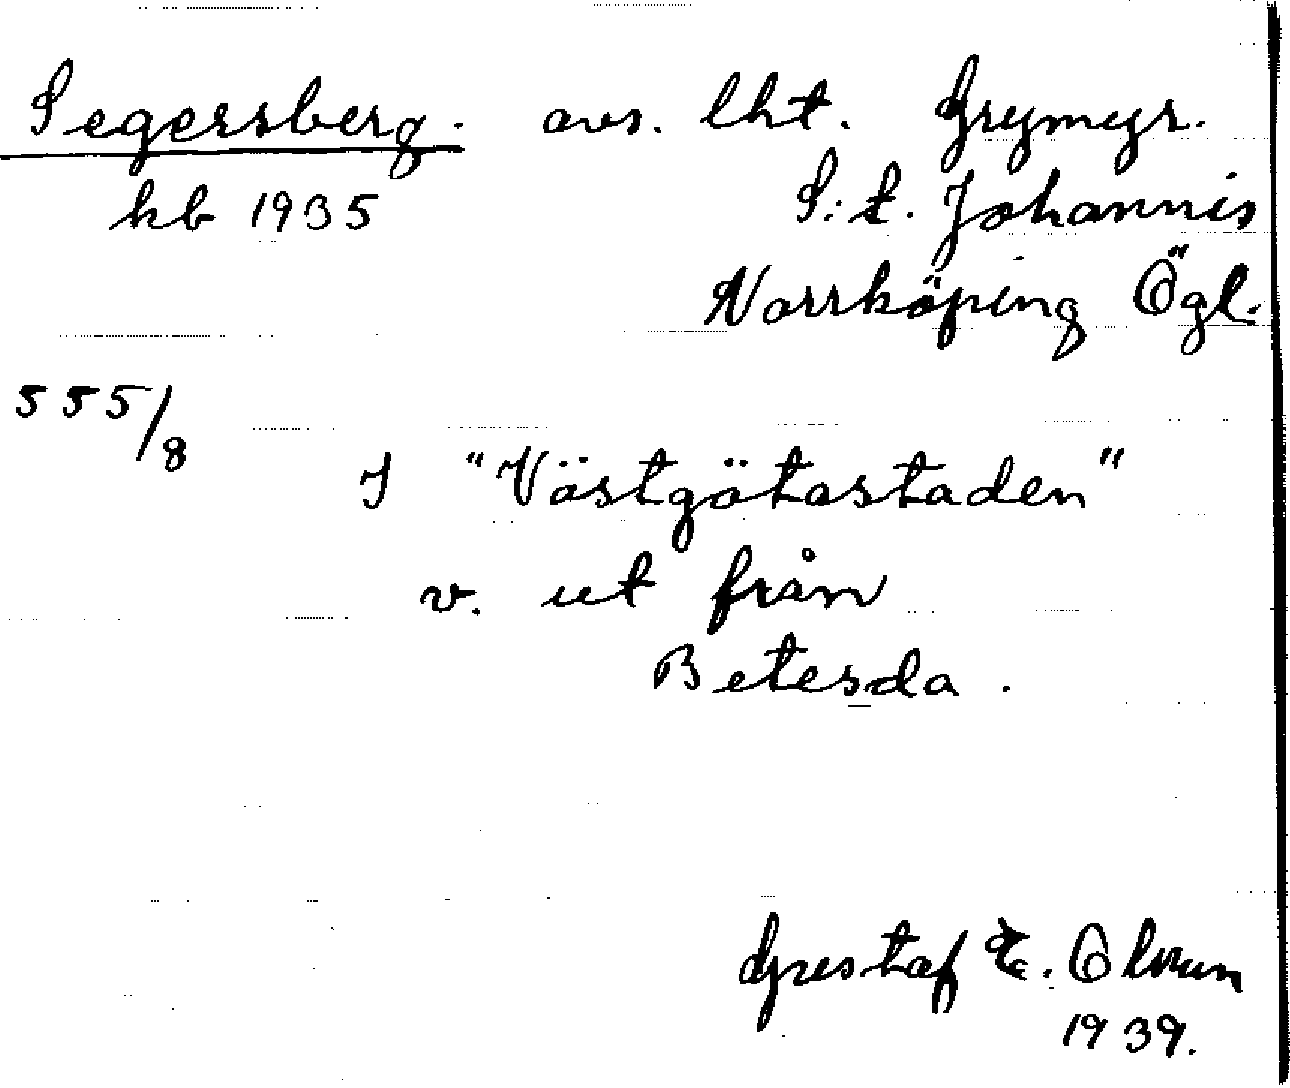 Segersberg. avs. lht. Grymyr.
kb 1935 S:t. Johannis
Norrköping Ögl.
555/8
I "Västgötastaden"
v. ut från
Betesda.
Gustaf E. Olsson
1939.